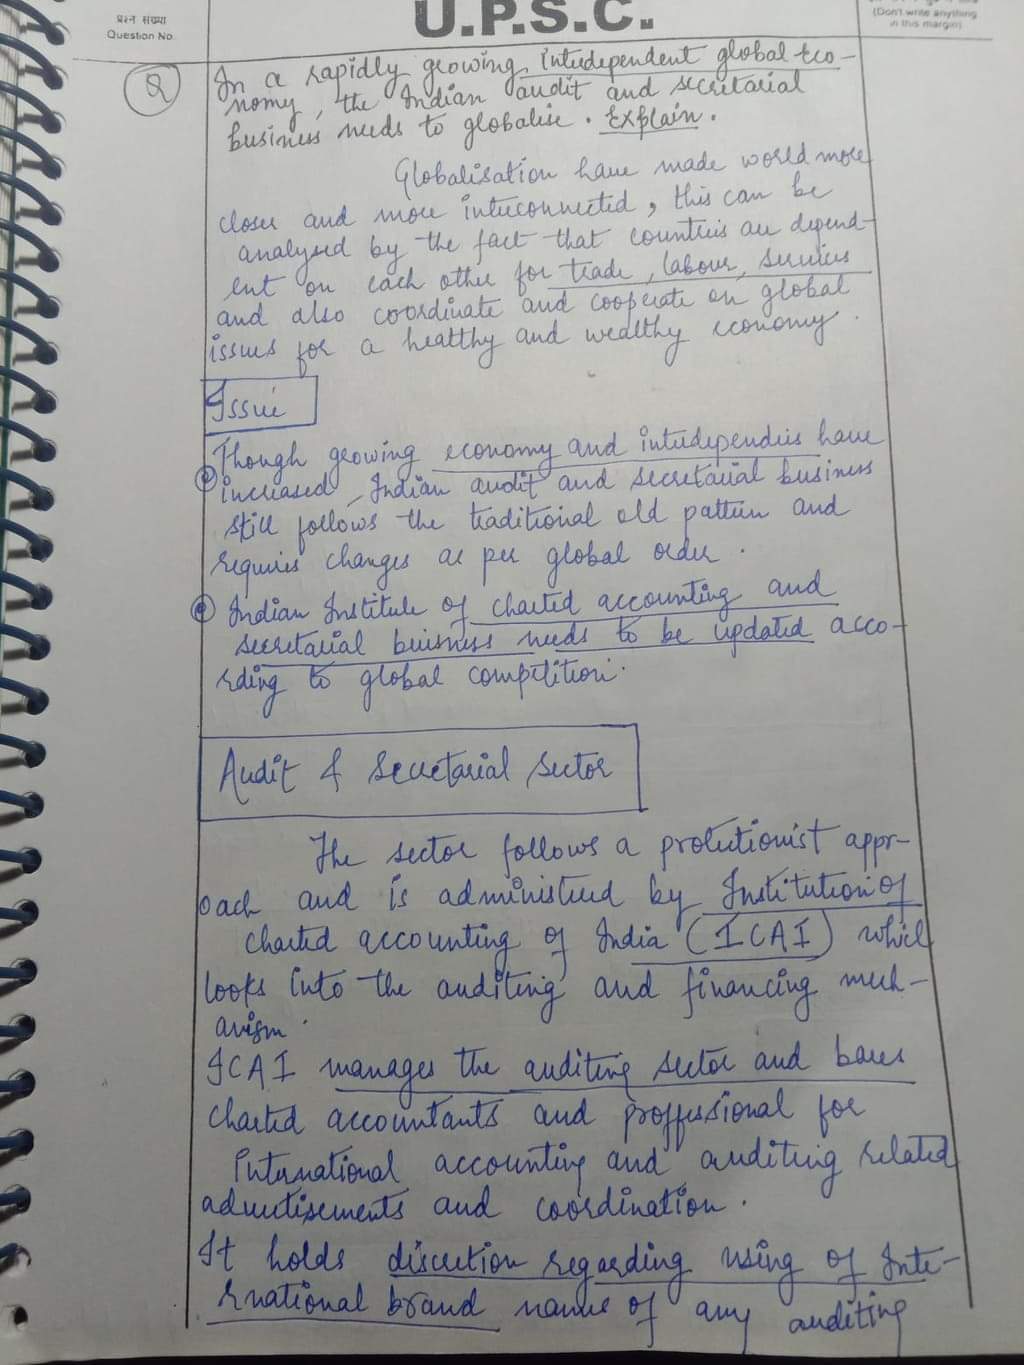 प्रश्न संख्या
Question No.
U.P.S.C.
(Don't write anything
in this margin)
Q
In a rapidly growing interdependent global eco-
nomy, the Indian audit and secretarial
business needs to globalise. Explain.
Globalisation have made world more
closer and more interconnected, this can be
analysed by the fact that countries are depend-
ent on each other for trade, labour, services
and also coordinate and cooperate on global
issues for a healthy and wealthy economy.
Issue
Though growing economy and interdependies have
increased, Indian audit and secretarial business
still follows the traditional old pattern and
requires changes as per global order.
Indian Institute of charted accounting and
secretarial buisness needs to be updated acco-
rding to global competition.
Audit & Secretarial Sector
The sector follows a protectionist appr-
oach and is administered by Institution of
charted accounting of India (ICAI) which
looks into the auditing and financing mech-
anism.
ICAI manages the auditing sector and bares
charted accountants and proffessional for
International accounting and auditing related
advertisements and coordination.
It holds discretion regarding using of Inte-
rnational brand name of any auditing